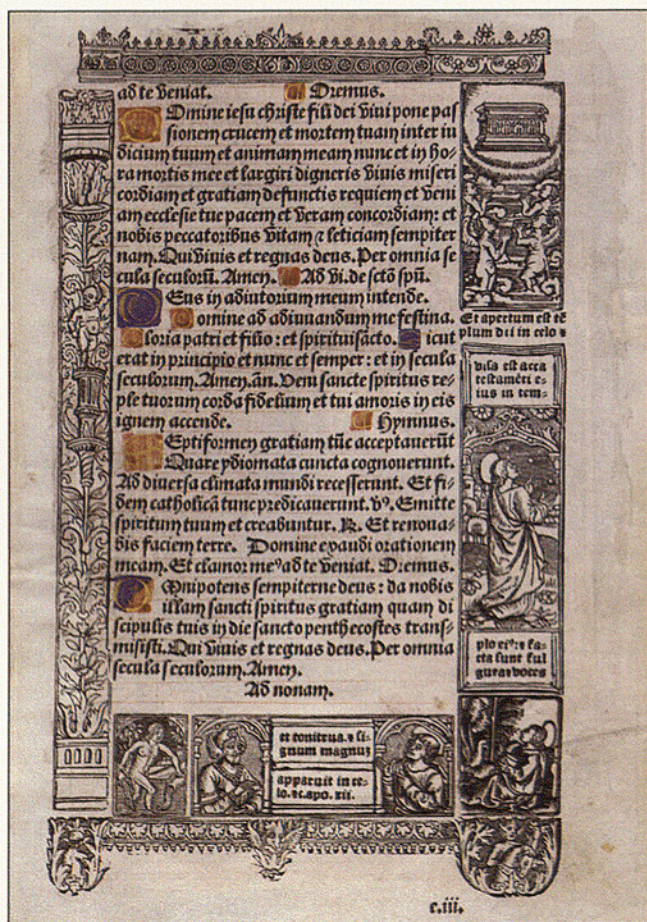 ad te veniat. Oremus.
Omine iesu christe fili dei vivi pone pas
sionem crucem et mortem tuam inter iu
dicium tuum et animam meam nunc et in ho-
ra mortis mee et largiri digneris vivis miseri
cordiam et gratiam defunctis requiem et veni
am ecclesie tue pacem et veram concordiam: et
nobis peccatoribus vitam ⁊ leticiam sempiter
nam. Qui vivis et regnas deus. Per omnia se
cula seculoꝝ. Amen. Ad vi. de sctō spū.
Eus in adiutorium meum intende.
omine ad adiuvandum me festina.
loria patri et filio: et spirituisācto. icut
erat in principio et nunc et semper: et in secula
seculorum. Amen. añ. Veni sancte spiritus re-
ple tuorum corda fidelium et tui amoris in eis
ignem accende. Hymnus.
Septiformen gratiam tūc acceptaverūt
Quare ydiomata cuncta cognoverunt.
Ad diversa climata mundi recesserunt. Et fi-
dem catholicā tunc predicaverunt. v⁹. Emitte
spiritum tuum et creabuntur. R. Et renova-
bis faciem terre. Domine exaudi orationem
meam. Et clamor me⁹ ad te veniat. Oremus.
Omnipotens sempiterne deus: da nobis
illam sancti spiritus gratiam quam di
scipulis tuis in die sancto penthecostes trans-
misisti. Qui vivis et regnas deus. Per omnia
secula seculorum. Amen.
Ad nonam.
Et apertum est tē
plum dñi in celo ⁊
visa est arca
testamēti e-
ius in tem-
plo ei⁹: ⁊ fa-
cta sunt ful
gura ⁊ voces
et tonitrua. ⁊ si-
gnum magnuȝ
apparuit in ce-
lo. ⁊c. apo. xii.
c.iii.